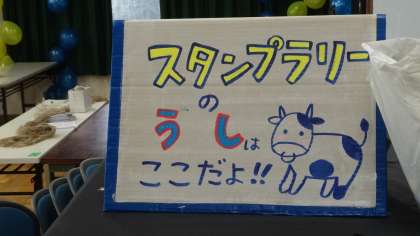 スタンプラリー
の
うしは
ここだよ!!